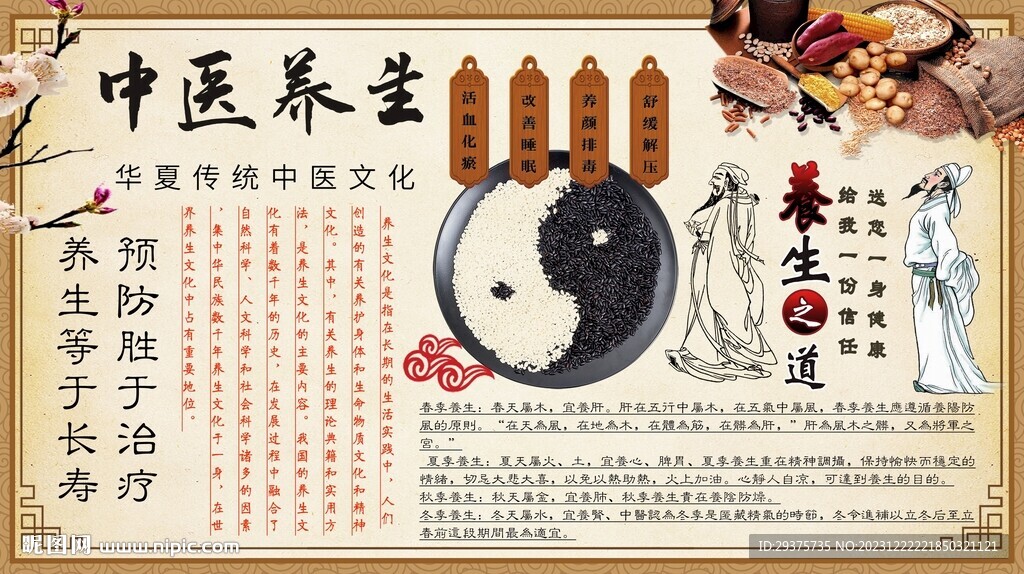 中医养生
华夏传统中医文化
活血化瘀
改善睡眠
养颜排毒
舒缓解压
預防胜于治疗
养生等于长寿
养生文化是指在长期的生活实践中，人们
创造的有关养护身体和生命物质文化和精神
文化。其中，有关养生的理论典籍和实用方
法，是养生文化的主要内容。我国的养生文
化有着数千年的历史，在发展过程中融合了
自然科学、人文科学和社会科学诸多的因素
，集中华民族数千年养生文化于一身，在世
界养生文化中占有重要地位。
養生之道
送您一身健康
给我一份信任
春季養生：春天屬木，宜養肝。肝在五行中屬木，在五氣中屬風，春季養生應遵循養陽防
風的原則。“在天為風，在地為木，在體為筋，在髒為肝，”肝為風木之髒，又為將軍之
宮。”
夏季養生：夏天屬火、土，宜養心、脾胃、夏季養生重在精神調攝，保持愉快而穩定的
情緒，切忌大悲大喜，以免以熱助熱，火上加油。心靜人自凉，可達到養生的目的。
秋季養生：秋天屬金，宜養肺、秋季養生貴在養陰防燥。
冬季養生：冬天屬水，宜養腎、中醫認為冬季是匿藏精氣的時節，冬令進補以立冬后至立
春前這段期間最為適宜。
昵图网 www.nipic.com
ID:29375735 NO:20231222221850321121